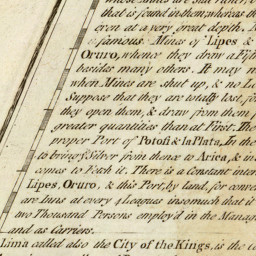 that is found in them; whereas th
even at a very great depth.
famous Mines of Lipes &
Oruro, whence they draw a Fift
besides many others. It may
when Mines are shut up, & no L
Suppose that they are totally lost, for
they open them, & draw from them
greater quantities than at First. The
proper Port of Potosi & la Plata, In the
to bring Silver from thence to Arica, & in
comes to Fetch it. There is a Constant inter
Lipes, Oruro, & this Port, by land, for conve
are Inns at every 4 Leagues insomuch that it
two Thousand Persons employ'd in the Manag
and as Carriers.
Lima called also the City of the Kings, is the c